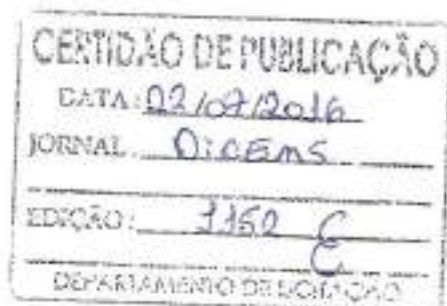 CERTIDÃO DE PUBLICAÇÃO
DATA: 02/07/2016
JORNAL DICEMS
EDIÇÃO: 1150
DEPARTAMENTO DE LICITAÇÃO